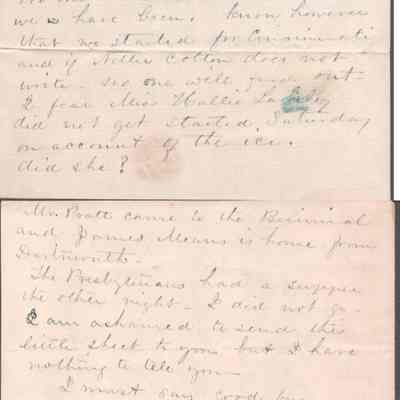 we is have been. I know however
that we started for Cincinnati
and if Nellie Cotton does not
write - no one will find out -
I fear Miss Hallie
did not get started Saturday
on account of the ice.
did she?
Mr. Pratt came to the Biennial
and James Means is home from
Dartmouth -
The Presbyterians had a supper
the other night - I did not go -
I am ashamed to send this
little sheet to you but I have
nothing to tell you -
I must say good bye